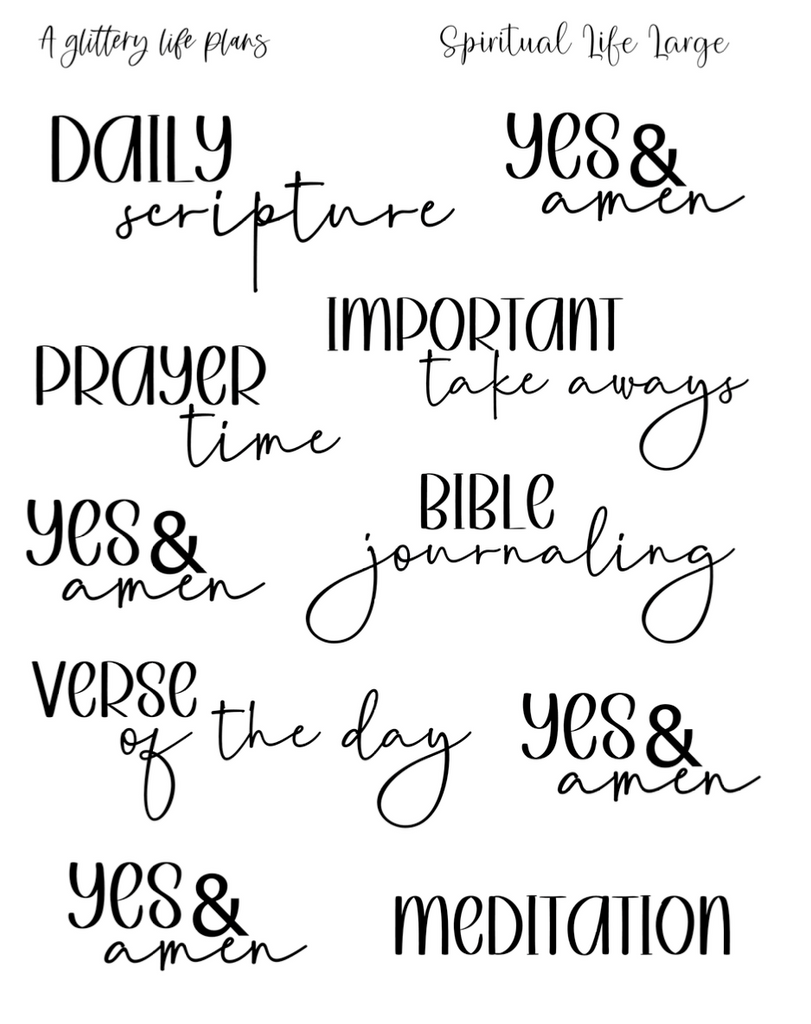 A glittery life plans
Spiritual Life Large
DAILY
scripture
yes &
amen
IMPORTANT
take aways
PRAYER
time
BIBLE
journaling
yes &
amen
VERSE
of the day
yes &
amen
yes &
amen
MEDITATION